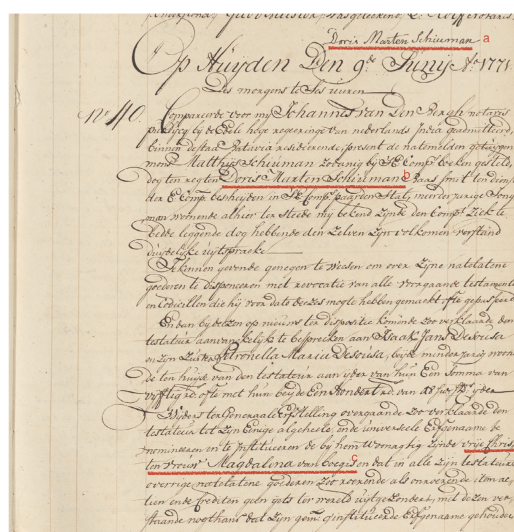 Doris Marten Schieman a
Op Huyden Den 9de Junij Ao 1771
Des morgens te Ses uuren
No 40. Compareerde voor mij Johannes van Den Bergh notaris
publicq bij de Edele hoge regeeringe van nederlands India geadmitteerd,
binnen de stad Batavia resideerende, present de natemelden getuijgen
Matthijs Schieman zodanig bij de Comp: boeken gesteld,
dog ten regten Doris Marten Schieman b baas smit ten dienste
der E Comp: bescheijden in 'sComp: paarden Stal, meerderjarige Jong
man wonende alhier ter steede mij bekend zijnde den Comp: Ziek te
bedde leggende dog hebbende den zelven zijn volkomen verstand
duijdelijke uijtspraeke
Te kennen gevende genegen te weesen om over zijne natelatene
goederen te disponeeren met revocatie van alle voorgaande testamenten
en Codicillen die hij voor dato deezes mogte hebben gemaekt ofte gepasseerd
En dan bij deezen op nieuws ter dispositie komende zoo verklaarde den
testateur aanvankelijk te bespreken aan Isaak Jans Desousa
en zijn Zuster Petronella Maria Desousa, beijde minderjarig woonen
de ten huijse van den testateur aan ijder van hun Een Somma van
vijfftig rd. ofte met hun beijde Een Hondert rd. van 48 ijder
Wijders ter generaale Erfstelling overgaande zoo verklaarde den
testateur tot zijn Eenige algeheele, ende universeele Erfgenaame te
nomineeren en te Institueeren de bij hem woonagtig zijnde vrije Chris
ten vrouw Magdalina van Boegis c en dat in alle zijn testateurs
overrige natelatene goederen zoo roerende als onroerende
tien ende Crediten geen gelt ter wereld uijtgezondert, met dezen ver-
staande nogthans dat zijn gem: geinstitueerde Erfgenaame gehouden